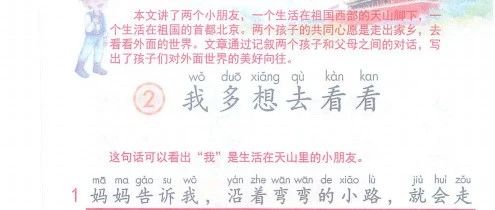 本文讲了两个小朋友，一个生活在祖国西部的天山脚下，一
个生活在祖国的首都北京。两个孩子的共同心愿是走出家乡，去
看看外面的世界。文章通过记叙两个孩子和父母之间的对话，写
出了孩子们对外面世界的美好向往。
wǒ duō xiǎng qù kàn kan
② 我多想去看看
这句话可以看出“我”是生活在天山里的小朋友。
mā ma gào su wǒ yán zhe wān wān de xiǎo lù jiù huì zǒu
1 妈妈告诉我，沿着弯弯的小路，就会走